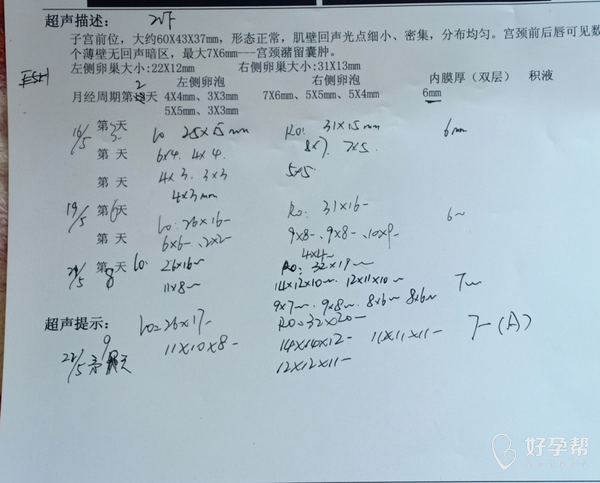 超声描述:
子宫前位，大约60X43X37mm，形态正常，肌壁回声光点细小、密集，分布均匀。宫颈前后唇可见数
个薄壁无回声暗区，最大7X6mm---宫颈潴留囊肿。
左侧卵巢大小:22X12mm 右侧卵巢大小:31X13mm
左侧卵泡 右侧卵泡 内膜厚（双层） 积液
月经周期第2天 4X4mm、3X3mm 7X6mm、5X5mm、5X4mm 6mm
5X5mm、3X3mm
16/5 第3天 Lo 25x15mm Ro: 31x15mm 6mm
第 天 6x4. 4x4. 8x7 7x5.
第 天 4x3. 3x3 5x5
4x3mm
19/5 第6天 Lo: 26x16 Ro: 31x16 6
第 天 6x6、2x2 9x8、9x8、10x9
4x4
21/5 第8天 Lo: 26x16 Ro: 32x19
11x8 14x12x10 12x11x10 7
9x7、9x8、8x6 8x6
超声提示: Lo=26x17 Ro=32x20
22/5 9天 11x10x8 14x14x12 11x11x11 7 (A)
12x12x11
好孕帮